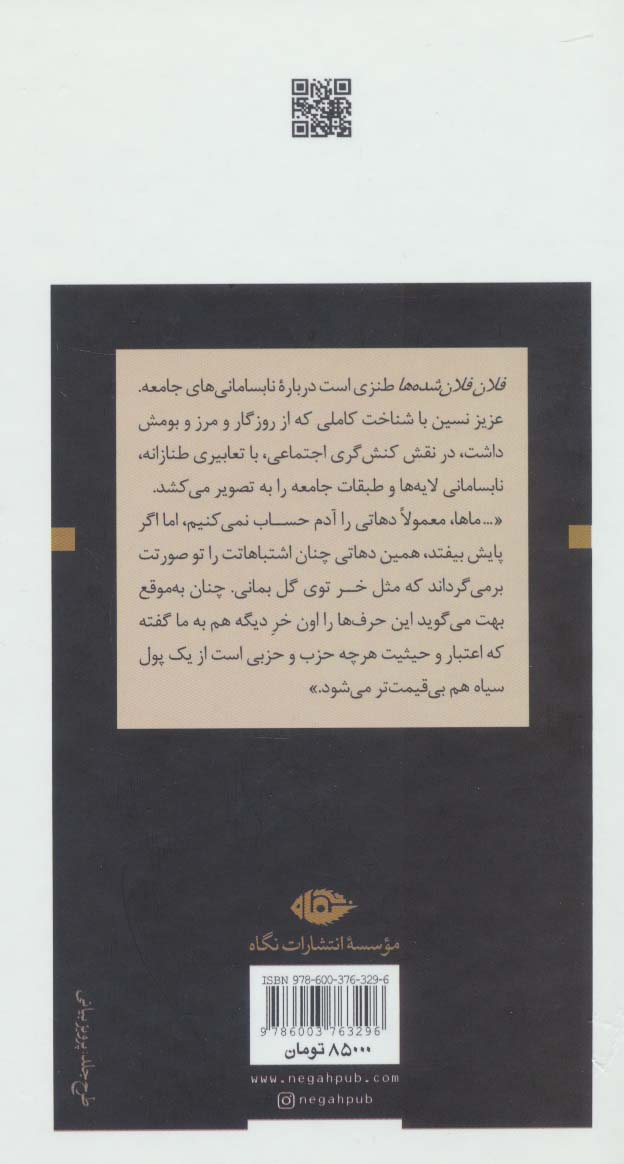 فلان فلان‌شده‌ها طنزی است دربارهٔ نابسامانی‌های جامعه.
عزیز نسین با شناخت کاملی که از روزگار و مرز و بومش
داشت، در نقش کنش‌گری اجتماعی، با تعابیری طنازانه،
نابسامانی لایه‌ها و طبقات جامعه را به تصویر می‌کشد.
«... ماها، معمولاً دهاتی را آدم حساب نمی‌کنیم، اما اگر
پایش بیفتد، همین دهاتی چنان اشتباهاتت را تو صورتت
برمی‌گرداند که مثل خر توی گل بمانی. چنان به‌موقع
بهت می‌گوید این حرف‌ها را اون خرِ دیگه هم به ما گفته
که اعتبار و حیثیت هرچه حزب و حزبی است از یک پول
سیاه هم بی‌قیمت‌تر می‌شود.»
مؤسسهٔ انتشارات نگاه
ISBN 978-600-376-329-6
9 786003 763296
۸۵۰۰۰ تومان
www.negahpub.com
negahpub
طرح جلد: پرویز بیانی